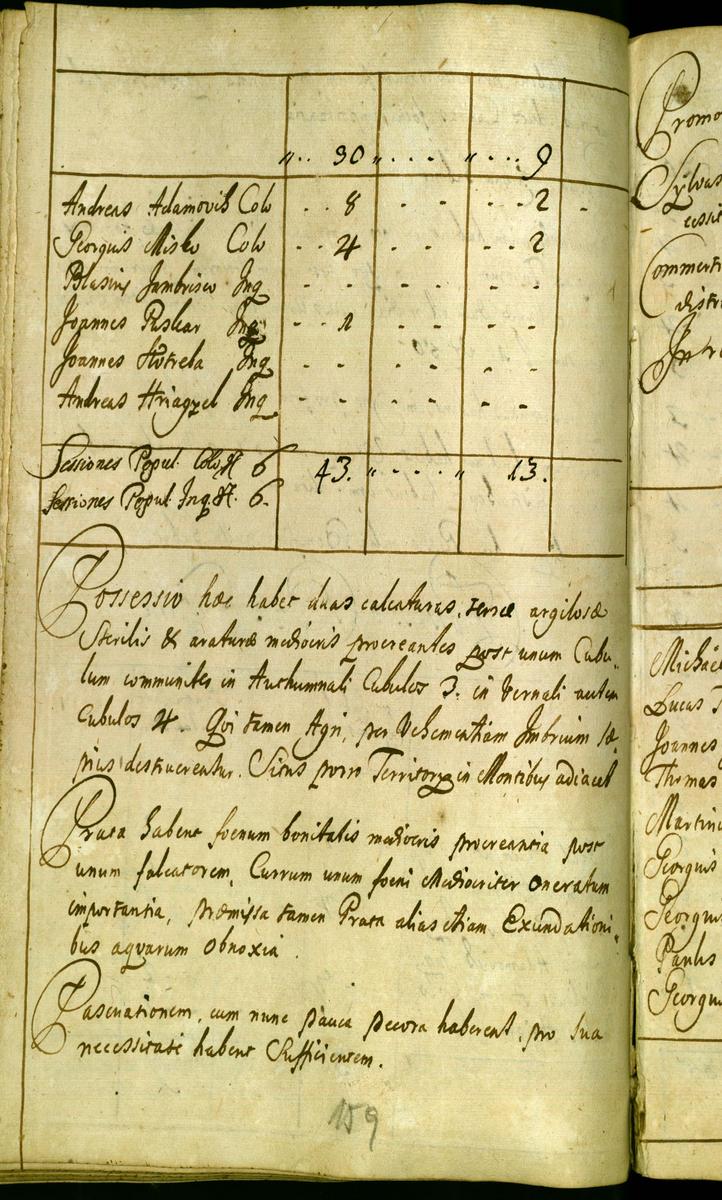 „ .. 30 „ . . . „ ... 9
Andreas Adamovih Colo . . 8 - - - - 2 -
Georgius Misko Colo - - 4 - - - - 2
Blasius Jambrisco Inq - - - - - -
Joannes Puskar Inq - 1 - - - -
Joannes Inq - - - - - -
Andreas Hriagyel Inq - - - - - -
Sessiones Popul. Colo 6 43. „ . . . . „ 13.
Sessiones Popul. Inq 6.
Possessio hæc habet duas calcaturas, terræ argilosæ
Sterilis & araturæ mediocris procreantes post unum Cubu„
lum communiter in Authumnali Cubulos 3. in Vernali autem
Cubulos 4. Qvi tamen Agri, per Vehementiam Imbrium sæ„
pius destruerentur. Situs porro Territorÿ in Montibus adiacet
Prata habent foenum bonitatis mediocris procreantia post
unum falcatorem, Currum unum foeni Mediocriter Oneratum
importantia, præmissa tamen Prata alias etiam Exundationi„
bus aqvarum Obnoxia.
Pascuationem, cum nunc pauca pecora haberent, pro sua
necessitate habent Sufficientem.
159
Promo
Sylvas
cessit
Commerti
distr
Intr
Michael
Lucas
Joannes
Thomas
Martin
Georgius
Georgiu
Paulus
Georgiu